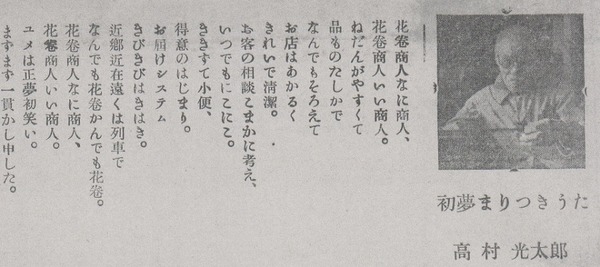 初夢まりつきうた
高村光太郎
花巻商人なに商人、
花巻商人いい商人。
ねだんがやすくて
品ものたしかで
なんでもそろえて
お店はあかるく
きれいで清潔。
お客の相談こまかに考え、
いつでもにこにこ。
ききすて小便、
得意のはじまり。
お届けシステム
きびきびはきはき。
近郷近在遠くは列車で
なんでも花巻かんでも花巻。
花巻商人なに商人、
花巻商人いい商人。
ユメは正夢初笑い。
ますます一貫かし申した。